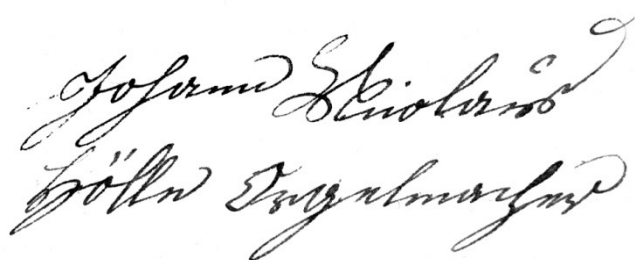 Johann Nicolaus
Hölle Orgelmacher